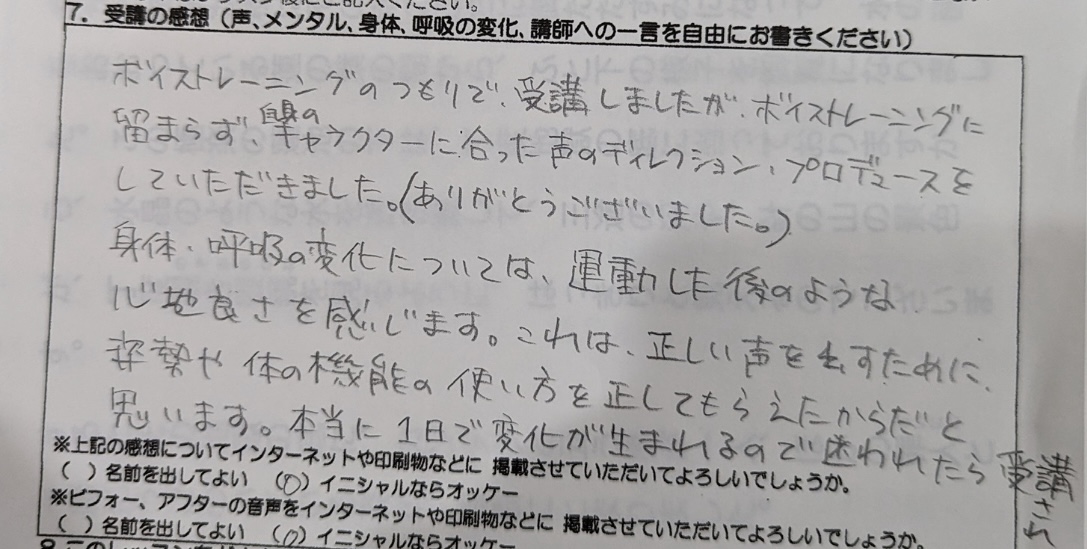 7. 受講の感想（声、メンタル、身体、呼吸の変化、講師への一言を自由にお書きください）
ボイストレーニングのつもりで、受講しましたが、ボイストレーニングに
留まらず、自身のキャラクターに合った声のディレクション、プロデュースを
していただきました。(ありがとうございました。)
身体・呼吸の変化については、運動した後のような
心地良さを感じます。これは、正しい声を出すために、
姿勢や体の機能の使い方を正してもらえたからだと
思います。本当に1日で変化が生まれるので迷われたら受講
され
※上記の感想についてインターネットや印刷物などに 掲載させていただいてよろしいでしょうか。
( ) 名前を出してよい (○) イニシャルならオッケー
※ビフォー、アフターの音声をインターネットや印刷物などに 掲載させていただいてよろしいでしょうか。
( ) 名前を出してよい (○) イニシャルならオッケー